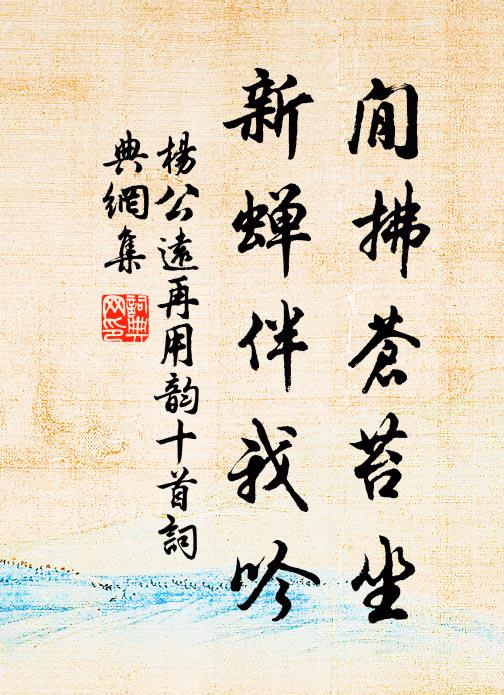 閒拂蒼苔坐
新蟬伴我吟
楊公遠再用韵十首詞
典網集
詞典
网印